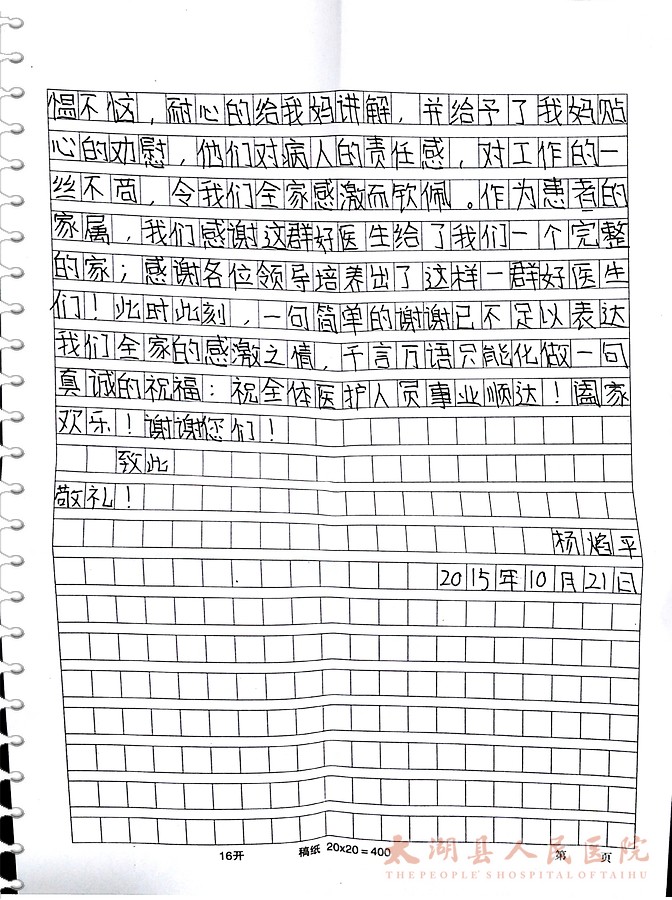 愠不恼，耐心的给我妈讲解，并给予了我妈贴
心的劝慰，他们对病人的责任感，对工作的一
丝不苟，令我们全家感激而钦佩。作为患者的
家属，我们感谢这群好医生给了我们一个完整
的家；感谢各位领导培养出了这样一群好医生
们！此时此刻，一句简单的谢谢已不足以表达
我们全家的感激之情，千言万语只能化做一句
真诚的祝福：祝全体医护人员事业顺达！阖家
欢乐！谢谢您们！
致此
敬礼！
杨焰平
2015年10月21日
16开 稿纸 20×20=400 第 页
太湖县人民医院
THE PEOPLE'S HOSPITAL OF TAIHU